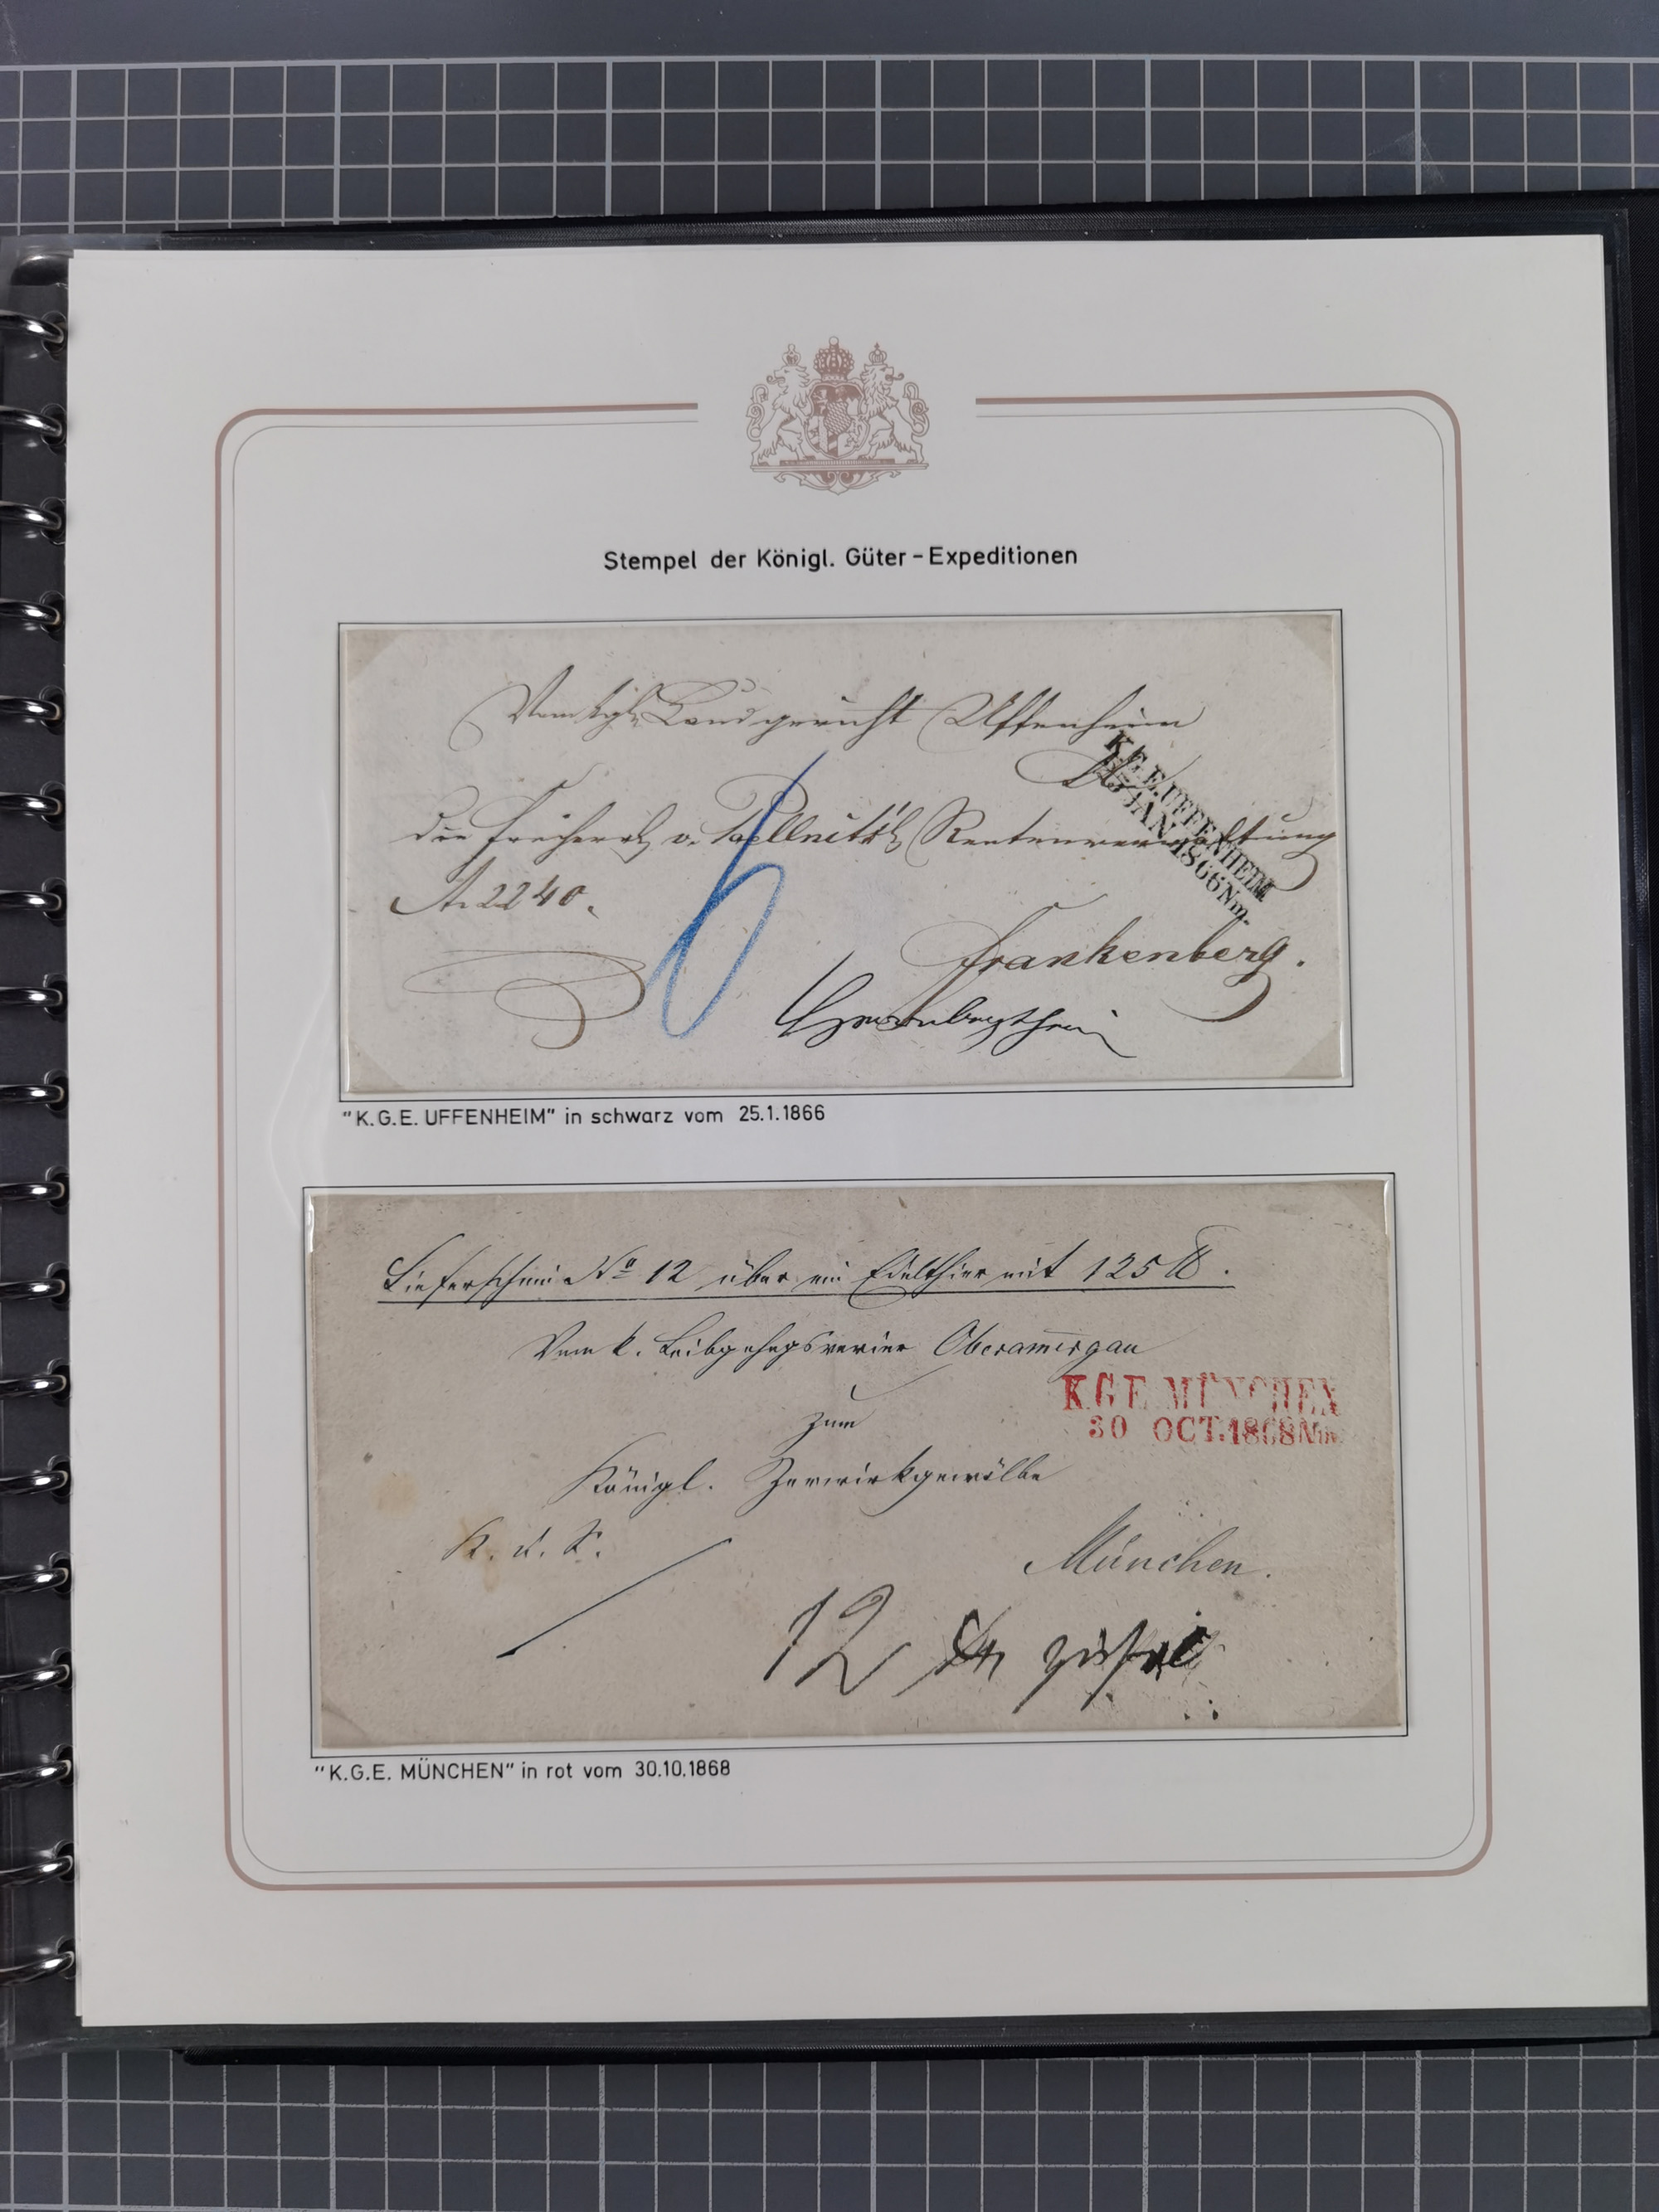 Stempel der Königl. Güter-Expeditionen
Vom kgl. Landgericht Uffenheim
K.G.E. UFFENHEIM
25 JAN. 1866 Nm.
die Freiherrl. v. Poellnitz'sche Rentenverwaltung
N. 2240.
6
Frankenberg.
"K.G.E. UFFENHEIM" in schwarz vom 25.1.1866
Lieferschein No 12 über ein Edelthier mit 125 ℔.
Vom k. Leibgehegsrevier Oberam̅ergau
K.G.E. MÜNCHEN
30 OCT. 1868 Nm.
zum
Königl. Zerwirkgewölbe
K. d. S.
München.
12
"K.G.E. MÜNCHEN" in rot vom 30.10.1868